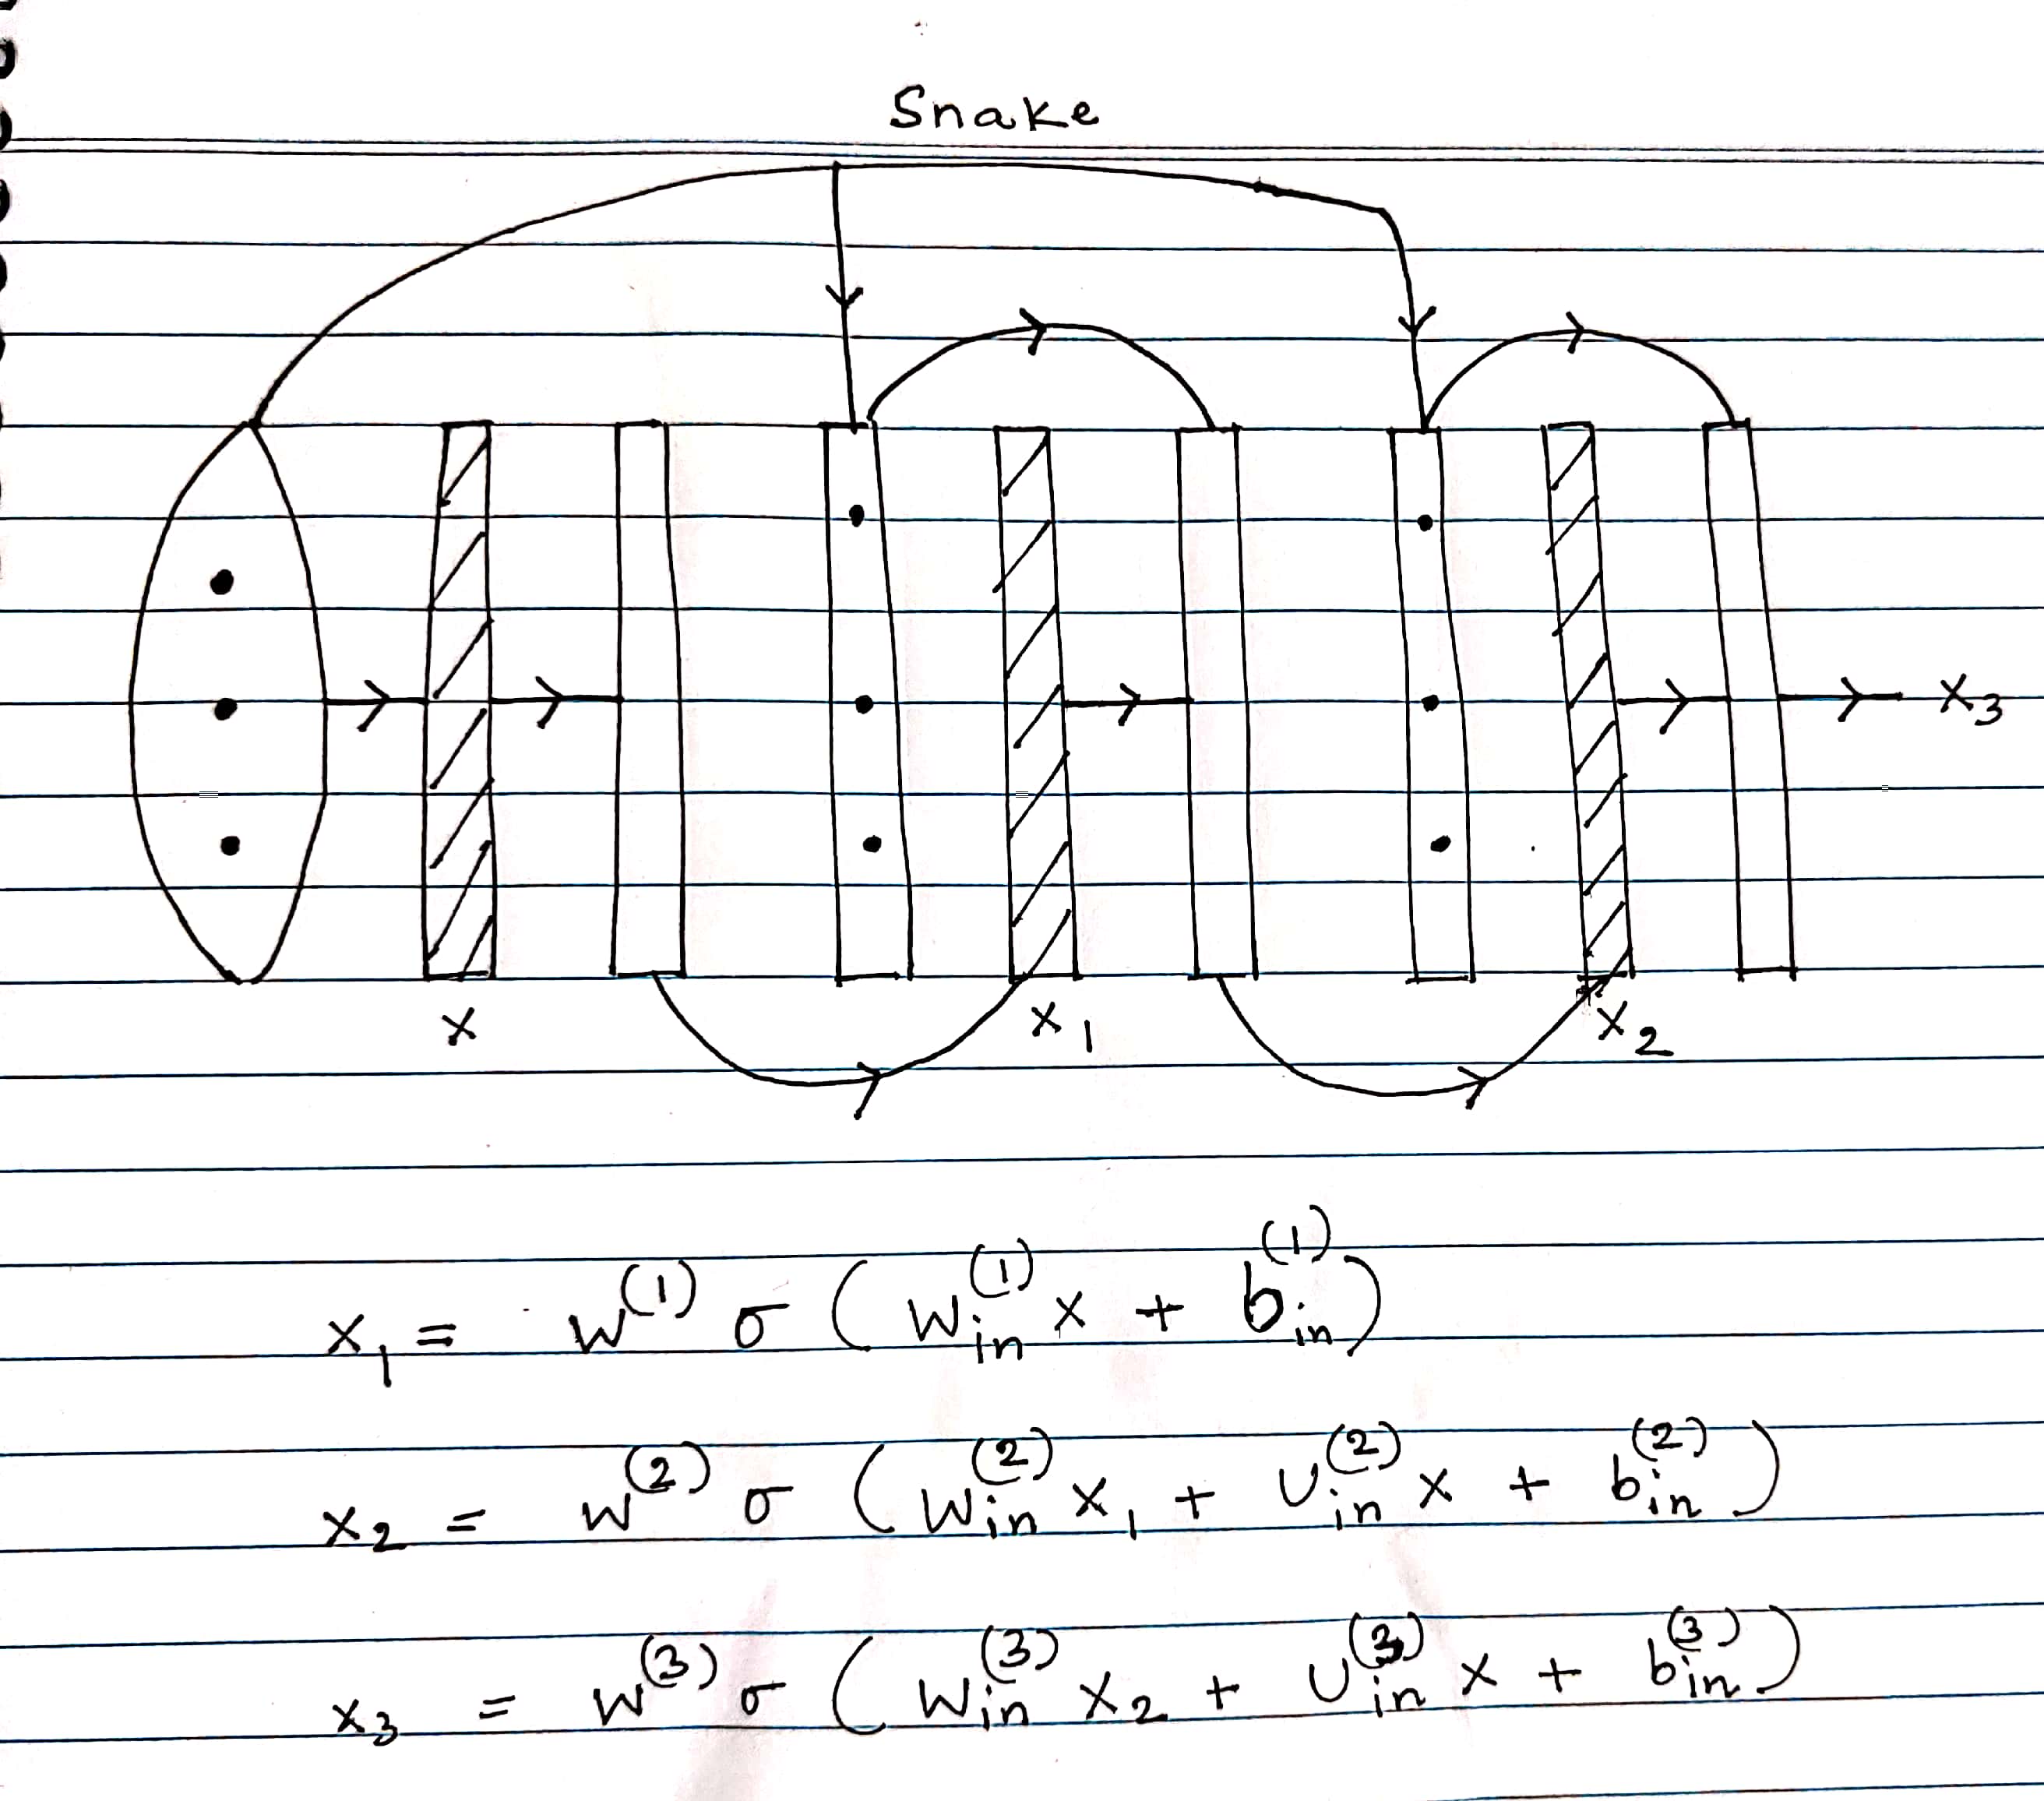 Snake
x₃
x x₁ x₂
x₁ = w⁽¹⁾ σ ( W_in⁽¹⁾ x + b_in⁽¹⁾ )
x₂ = w⁽²⁾ σ ( W_in⁽²⁾ x₁ + U_in⁽²⁾ x + b_in⁽²⁾ )
x₃ = w⁽³⁾ σ ( W_in⁽³⁾ x₂ + U_in⁽³⁾ x + b_in⁽³⁾ )